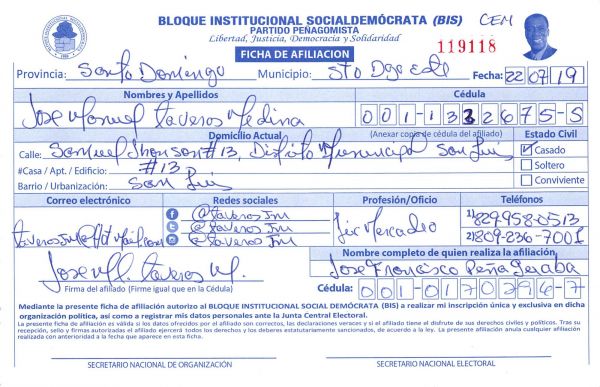 BLOQUE INSTITUCIONAL SOCIALDEMÓCRATA (BIS) CEM
PARTIDO PEÑAGOMISTA
Libertad, Justicia, Democracia y Solidaridad
FICHA DE AFILIACION 119118
Provincia: Santo Domingo Municipio: Sto Dgo este Fecha: 22/07/19
Nombres y Apellidos Cédula
Jose Manuel Taveras Medina 001-1322675-5
Domicilio Actual (Anexar copia de cédula del afiliado) Estado Civil
Calle: Samuel Jhonson #13, Distrito Municipal San Luis Casado
#Casa / Apt. / Edificio: #13 Soltero
Barrio / Urbanización: San Luis Conviviente
Correo electrónico Redes sociales Profesión/Oficio Teléfonos
@taverasJm 1) 829-958-0513
@taverasJm Lic Mercadeo 2) 809-236-7001
@taverasJm
Nombre completo de quien realiza la afiliación
Jose M. Taveras M. Jose Francisco Peña
Firma del afiliado (Firme igual que en la Cédula) Cédula: 001-0170296-7
Mediante la presente ficha de afiliación autorizo al BLOQUE INSTITUCIONAL SOCIAL DEMÓCRATA (BIS) a realizar mi inscripción única y exclusiva en dicha
organización política, así como a registrar mis datos personales ante la Junta Central Electoral.
La presente ficha de afiliación es válida si los datos ofrecidos por el afiliado son correctos, las declaraciones veraces y si el afiliado tiene el disfrute de sus derechos civiles y políticos. Tras su
recepción, sello y firmas autorizadas el afiliado ejercerá todos los derechos y los deberes estatutariamente sancionados, de acuerdo a la ley. La presente afiliación anula cualquier afiliación
realizada con anterioridad a la fecha que aparece en esta ficha.
SECRETARIO NACIONAL DE ORGANIZACIÓN SECRETARIO NACIONAL ELECTORAL